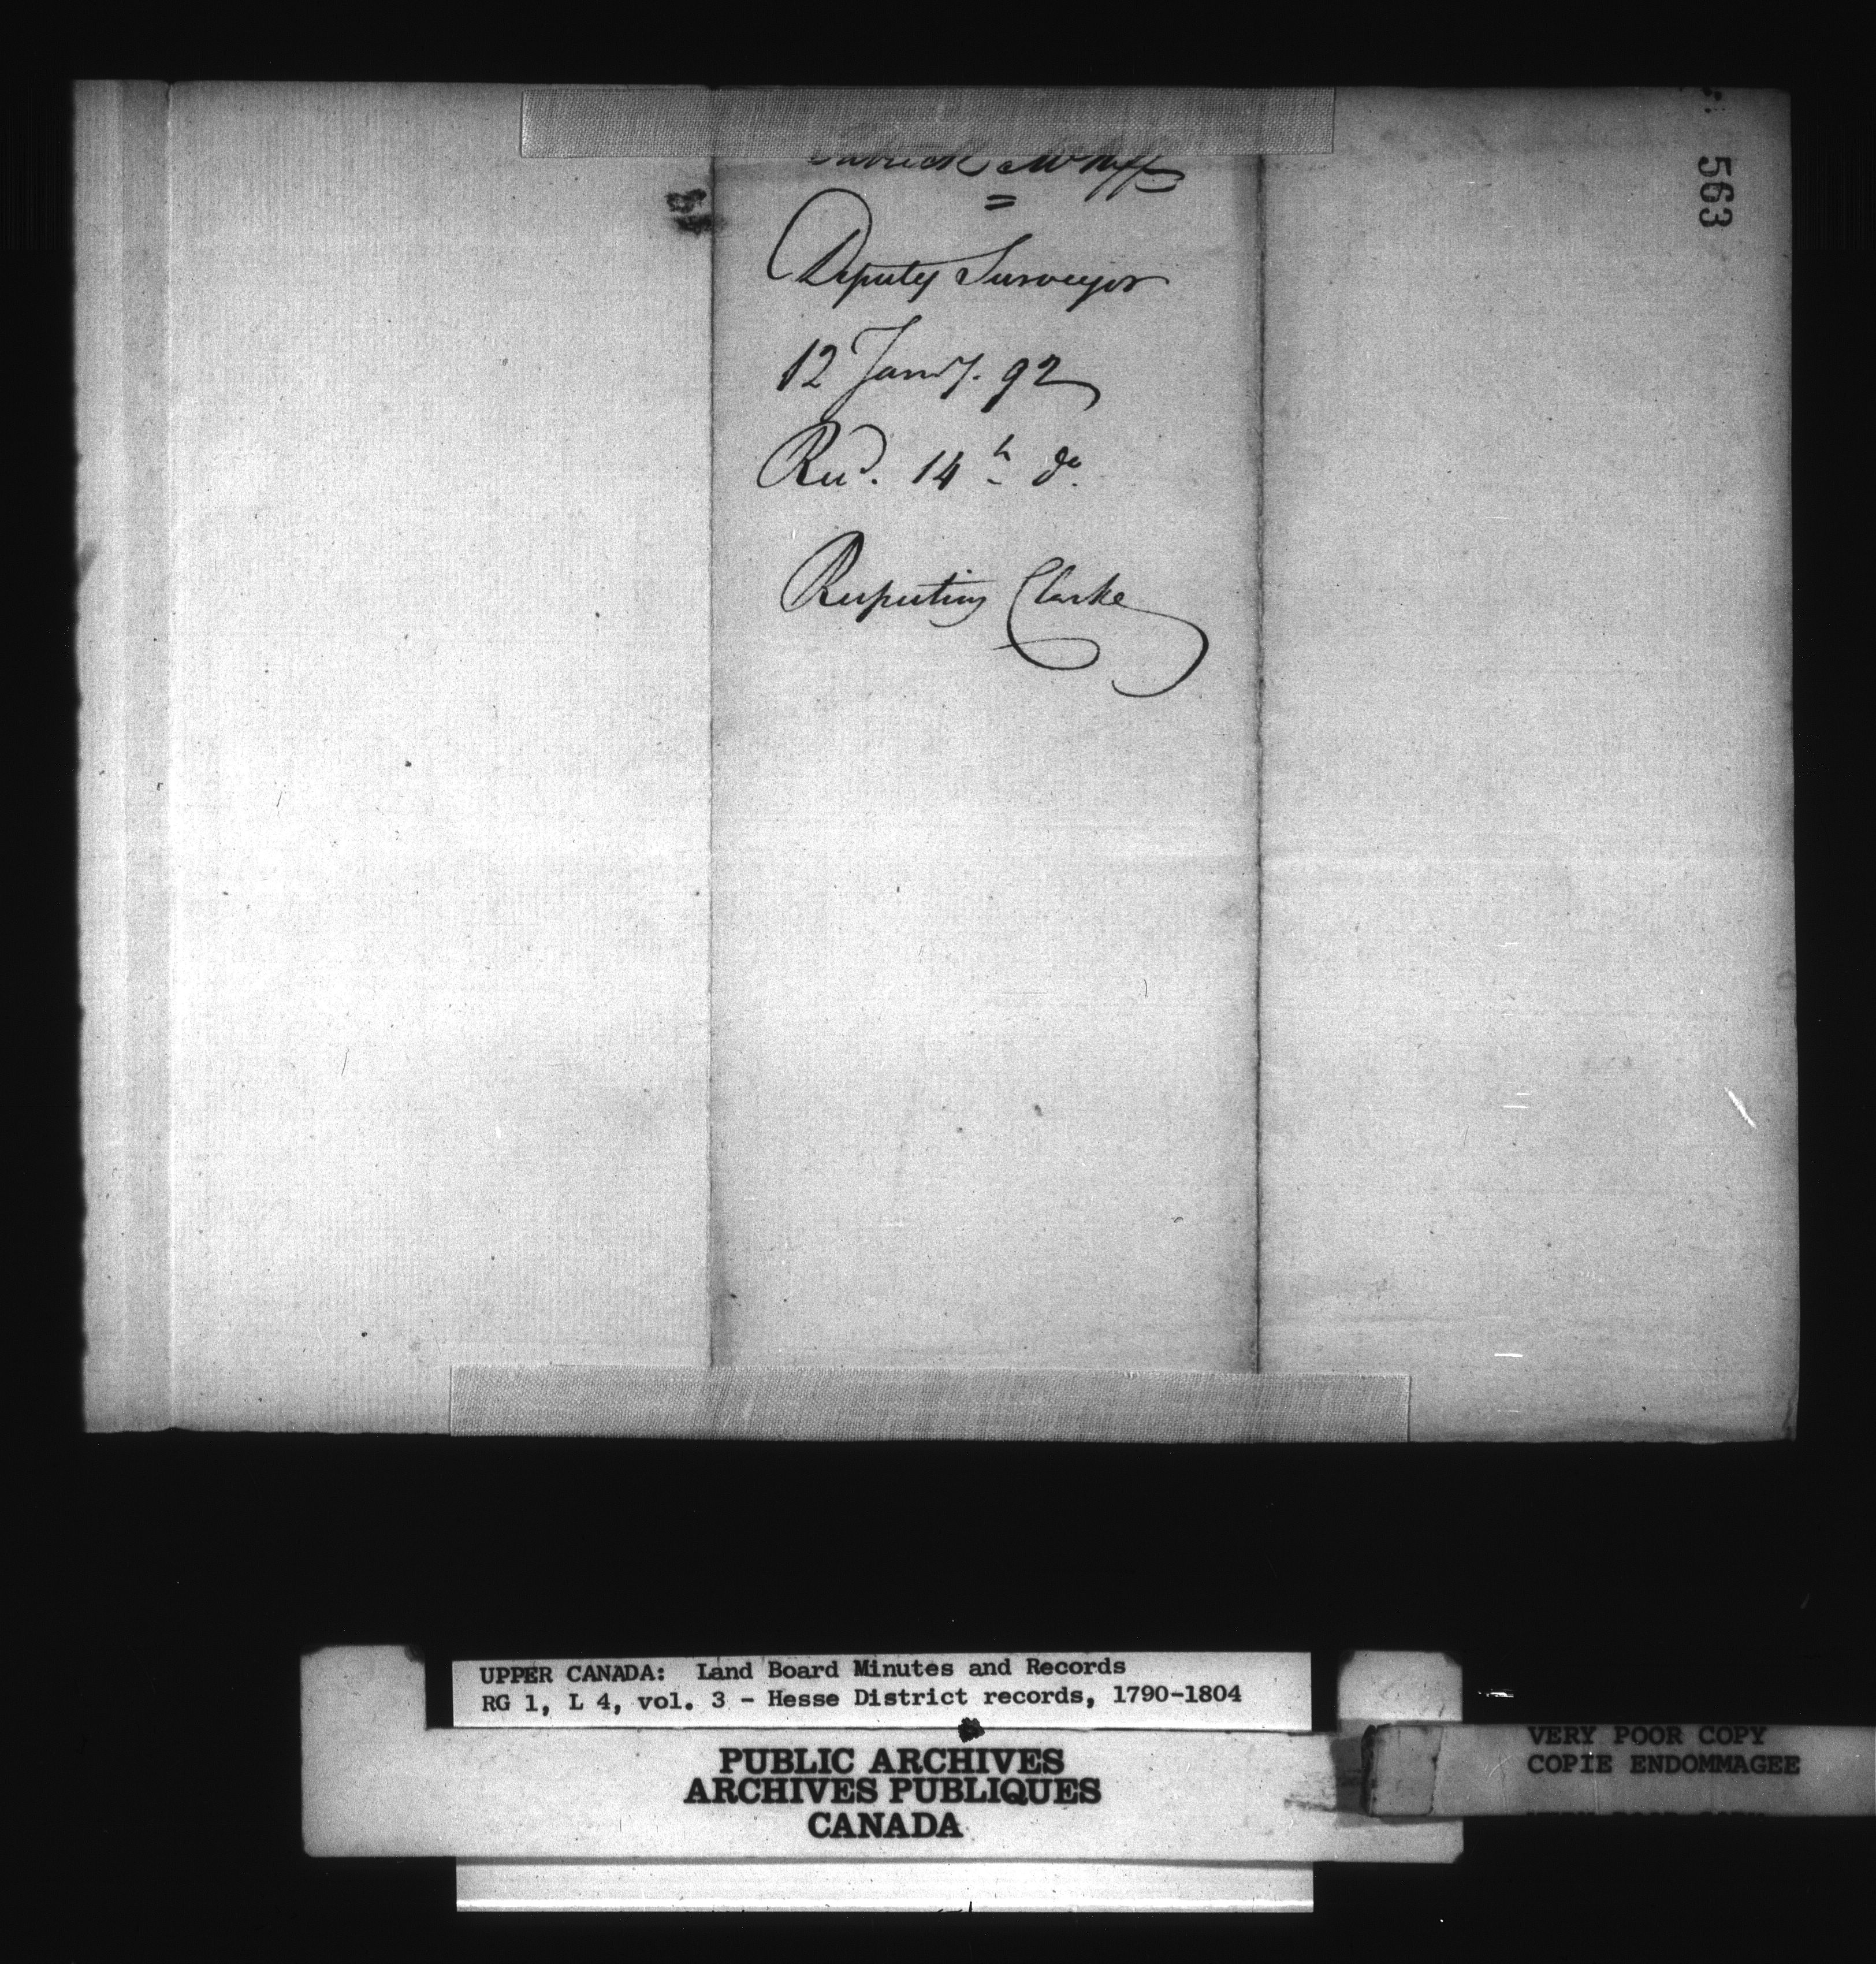 563
Patrick McNiff
=
Deputy Surveyor
12 Jany. 92
Recd. 14th do.
Respecting Clarke
UPPER CANADA: Land Board Minutes and Records
RG 1, L 4, vol. 3 - Hesse District records, 1790-1804
PUBLIC ARCHIVES
ARCHIVES PUBLIQUES
CANADA
VERY POOR COPY
COPIE ENDOMMAGEE